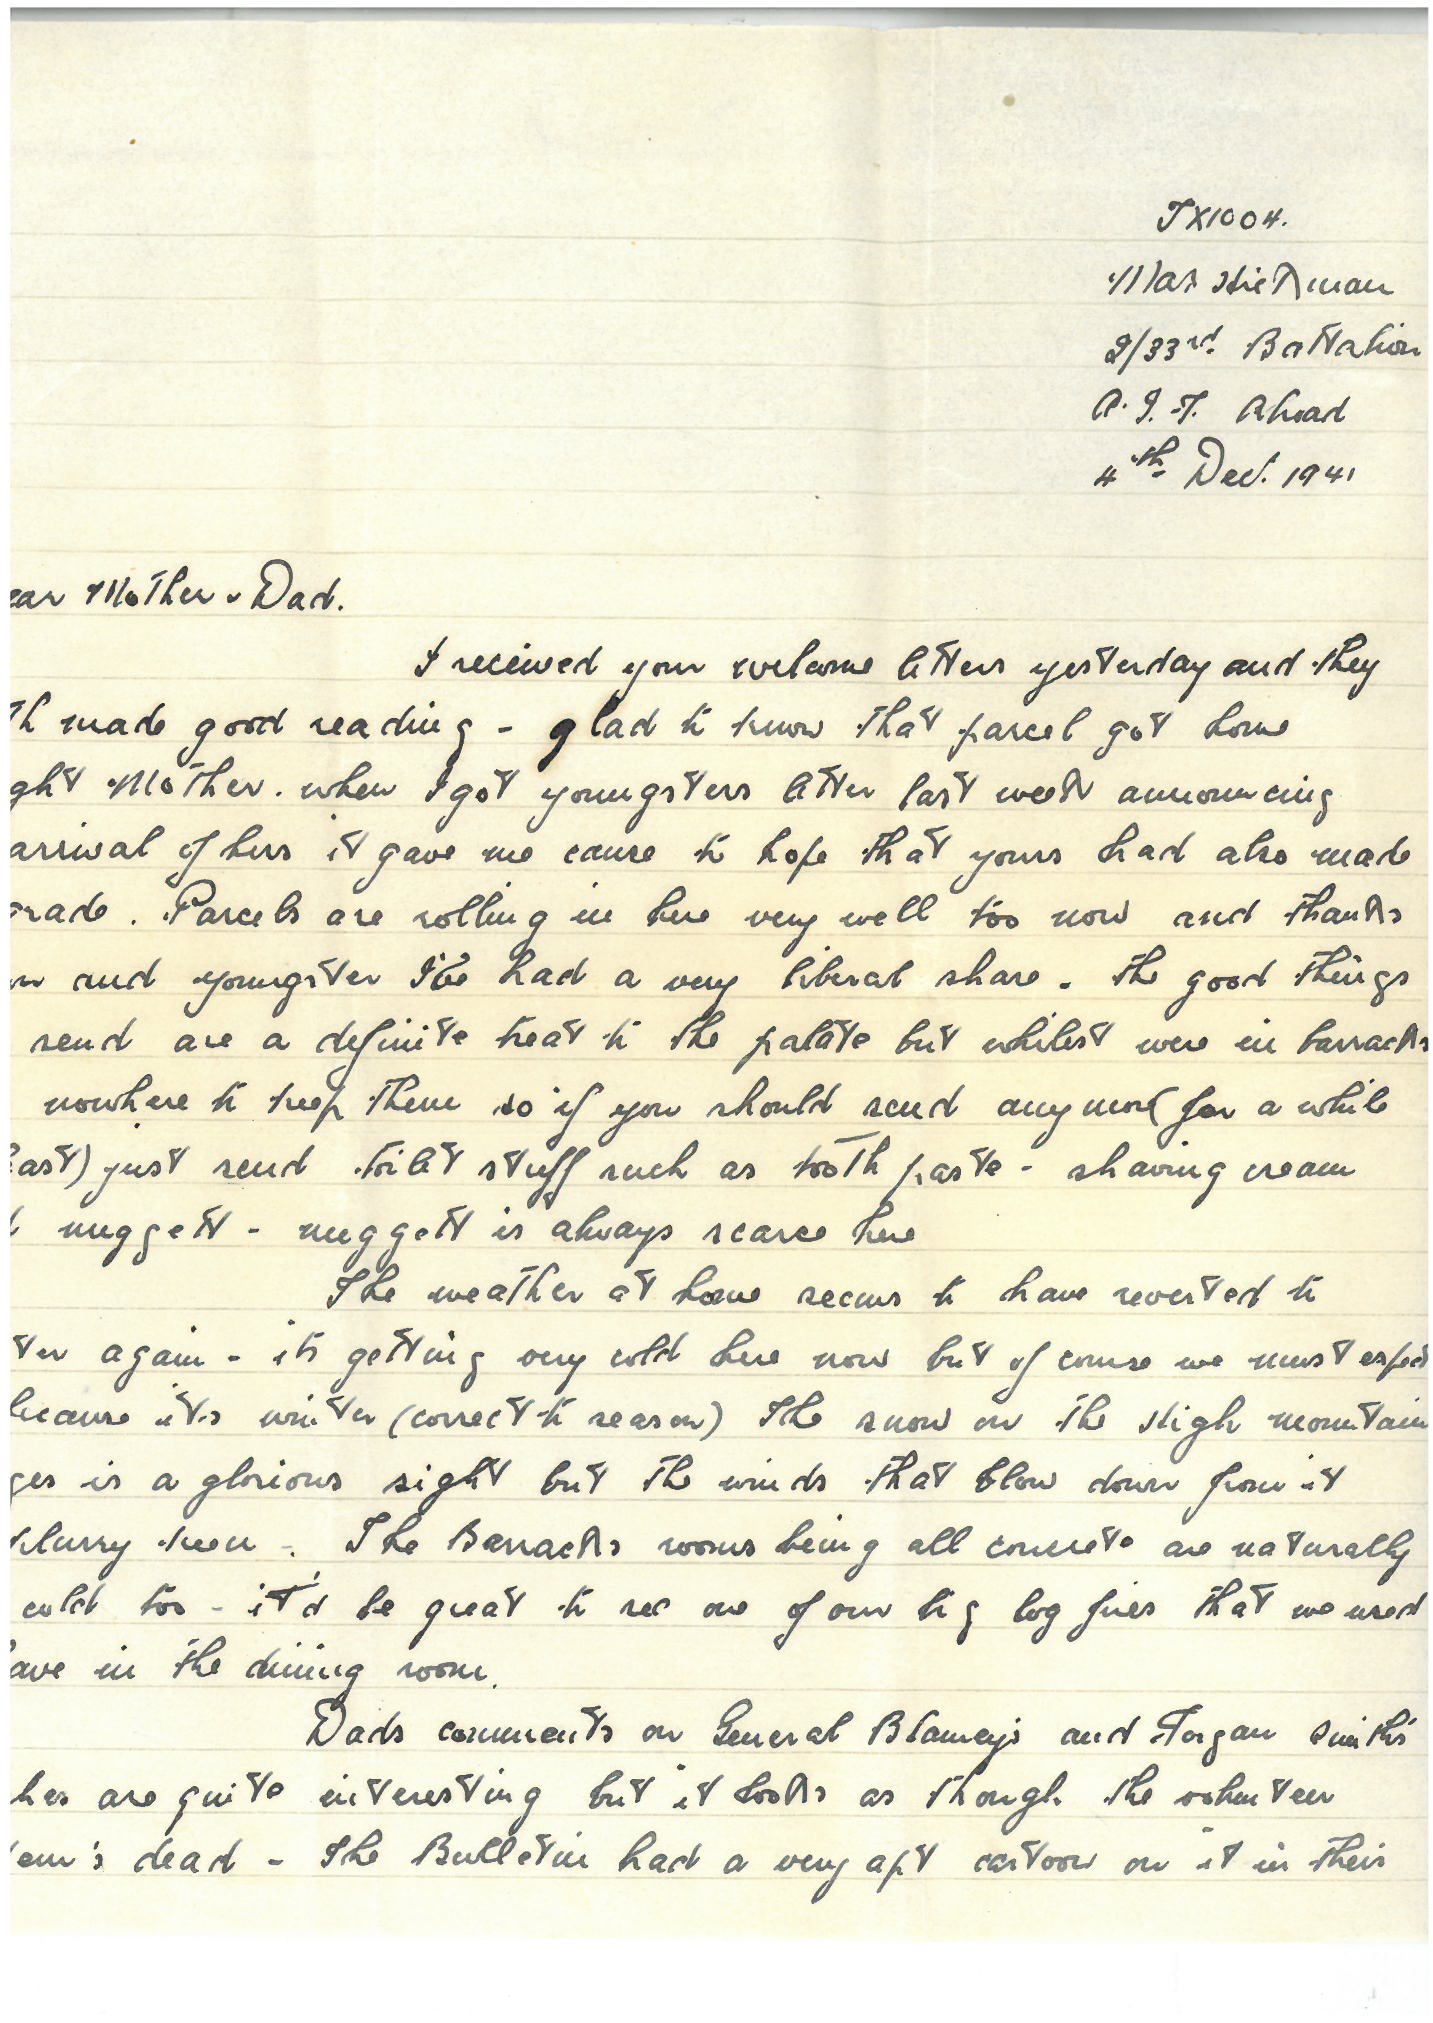 TX1004.
Max Hickman
2/33rd. Battalion
A.I.F. Abroad
4th Dec. 1941
ear Mother & Dad.
I received your welcome letters yesterday and they
th made good reading - glad to know that parcel got home
ght Mother. when I got youngsters letter last week announcing
arrival of hers it gave me cause to hope that yours had also made
grade. Parcels are rolling in here very well too now and thanks
and youngster I've had a very liberal share. The good things
send are a definite treat to the palate but whilst were in barracks
nowhere to keep them so if you should send anymore (for a while
east) just send toilet stuff such as tooth paste - shaving cream
d nuggett - nuggett is always scarce here
The weather at home seems to have reverted to
ter again - its getting very cold here now but of course we must expect
because its winter (correct to season) The snow on the High mountain
ges is a glorious sight but the winds that blow down from it
blurry keen - The Barracks rooms being all concrete are naturally
cold too - it'd be great to see one of our big log fires that we used
have in the dining room.
Dads comments on General Blamey's and Forgan Smith's
hes are quite interesting but it looks as though the volunteer
tem's dead - The Bulletin had a very apt cartoon on it in their